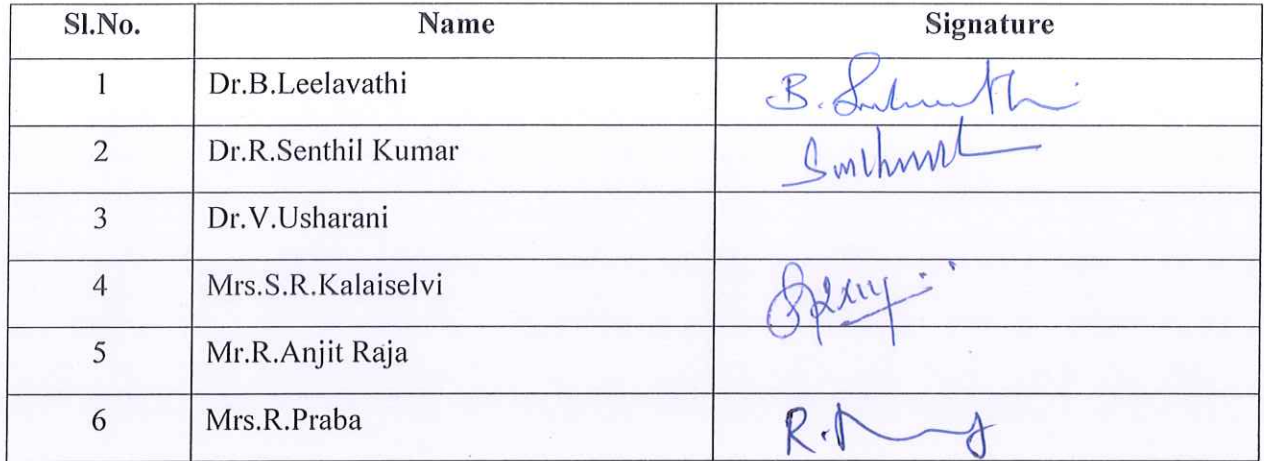 Sl.No. Name Signature
1 Dr.B.Leelavathi B.
2 Dr.R.Senthil Kumar
3 Dr.V.Usharani
4 Mrs.S.R.Kalaiselvi
5 Mr.R.Anjit Raja
6 Mrs.R.Praba R.